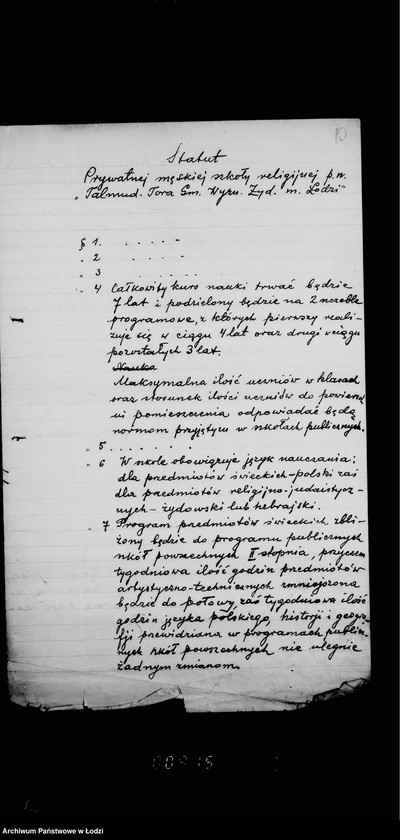 10
Statut
Prywatnej męskiej szkoły religijnej p.n.
"Talmud-Tora Gm. Wyzn. Żyd. m. Łodzi"
§ 1. . . . . .
" 2 . . . . .
" 3 . . . . . .
" 4 Całkowity kurs nauki trwać będzie
7 lat i podzielony będzie na 2 szczeble
programowe, z których pierwszy reali-
zuje się w ciągu 4 lat oraz drugi w ciągu
pozostałych 3 lat.
Nauka
Maksymalna ilość uczniów w klasach
oraz stosunek ilości uczniów do powierzch
ni pomieszczenia odpowiadać będą
normom przyjętym w szkołach publicznych.
" 5 . . . . . .
" 6 W szkole obowiązuje język nauczania:
dla przedmiotów świeckich - polski zaś
dla przedmiotów religijno-judaistycz-
nych - żydowski lub hebrajski.
" 7 Program przedmiotów świeckich zbli-
żony będzie do programu publicznych
szkół powszechnych II stopnia, przyczem
tygodniowa ilość godzin przedmiotów
artystyczno-technicznych zmniejszona
będzie do połowy, zaś tygodniowa ilość
godzin języka polskiego, historji i geogra-
fji przewidziana w programach publicz-
nych szkół powszechnych nie ulegnie
żadnym zmianom.
Archiwum Państwowe w Łodzi